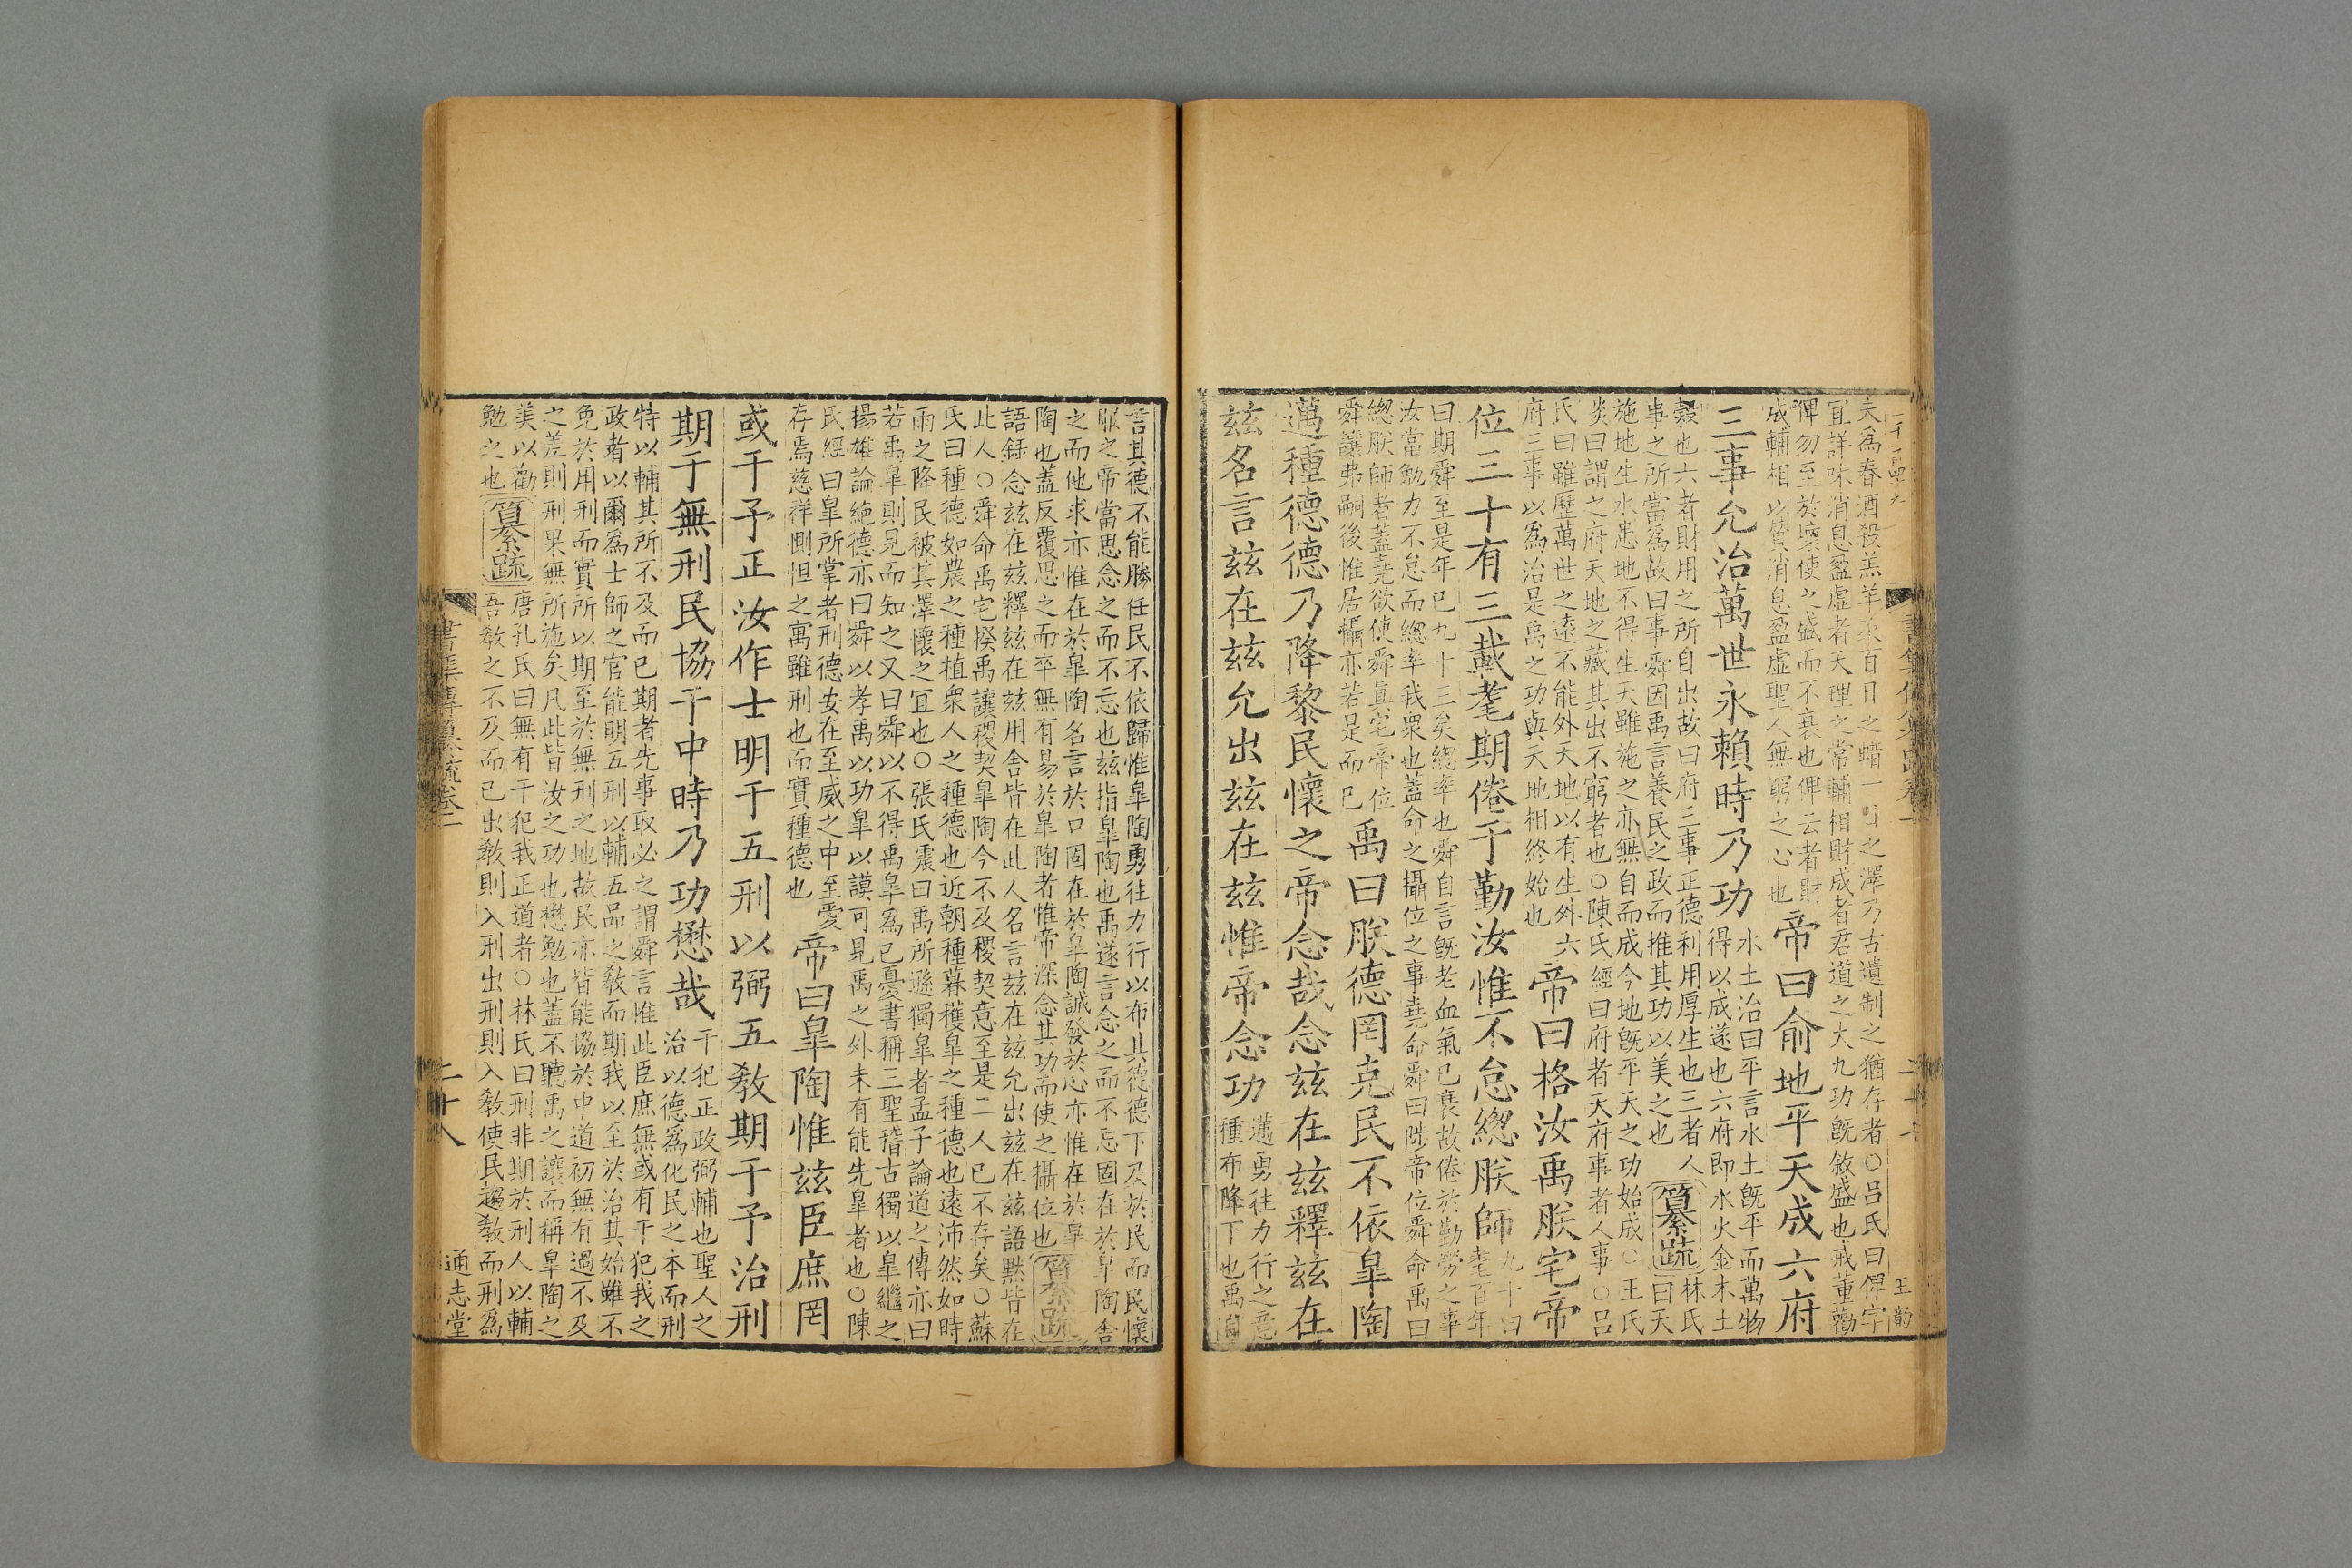 夫為春酒殺羔羊百日之蜡一日之澤乃古遺制之猶存者○呂氏曰俾字
宜詳味消息盈虛者天理之常輔相財成者君道之大九功既敘盛也戒董勸
俾勿至於壞使之盛而不衰也俾云者財
成輔相以贊消息盈虛聖人無窮之心也
帝曰俞地平天成六府
三事允治萬世永賴時乃功
水土治曰平言水土既平而萬物
得以成遂也六府即水火金木土
穀也六者財用之所自出故曰府三事正德利用厚生也三者人
事之所當為故曰事舜因禹言養民之政而推其功以美之也
纂疏
林氏
曰天
施地生水患地不得生天雖施之亦無自而成今地既平天之功始成○王氏
炎曰謂之府天地之藏其出不窮者也○陳氏經曰府者天府事者人事○呂
氏曰雖歷萬世之遠不能外天地以有生外六
府三事以為治是禹之功與天地相終始也
帝曰格汝禹朕宅帝
位三十有三載耄期倦于勤汝惟不怠緫朕師
九十曰
耄百年
曰期舜至是年已九十三矣緫率也舜自言既老血氣已衰故倦於勤勞之事
汝當勉力不怠而緫率我衆也蓋命之攝位之事堯命舜曰陟帝位舜命禹曰
緫朕師者蓋堯欲使舜真宅帝位
舜讓弗嗣後惟居攝亦若是而已
禹曰朕德罔克民不依皐陶
邁種德德乃降黎民懷之帝念哉念兹在兹釋兹在
兹名言兹在兹允出兹在兹惟帝念功
邁勇往力行之意
種布降下也禹自
言其德不能勝任民不依歸惟皐陶勇往力行以布其德德下及於民而民懷
服之帝當思念之而不忘也兹指皐陶也禹遂言念之而不忘固在於皐陶舎
之而他求亦惟在於皐陶名言於口固在於皐陶誠發於心亦惟在於皐
陶也蓋反覆思之而卒無有易於皐陶者惟帝深念其功而使之攝位也
纂疏
語録念兹在兹釋兹在兹用舎皆在此人名言兹在兹允出兹在兹語黙皆在
此人○舜命禹宅揆禹讓稷契皐陶今不及稷契意至是二人已不存矣○蘇
氏曰種德如農之種植衆人之種德也近朝種暮穫皐之種德也遠沛然如時
雨之降民被其澤懷之宜也○張氏震曰禹所遜獨皐者孟子論道之傳亦曰
若禹皐則見而知之又曰舜以不得禹皐為已憂書稱三聖稽古獨以皐繼之
揚雄論絶德亦曰舜以孝禹以功皐以謨可見禹之外未有能先皐者也○陳
氏經曰皐所掌者刑德安在至威之中至愛
存焉慈祥惻怛之寓雖刑也而實種德也
帝曰皐陶惟兹臣庶罔
或干予正汝作士明于五刑以弼五敎期于予治刑
期于無刑民協于中時乃功懋哉
干犯正政弼輔也聖人之
治以德為化民之本而刑
特以輔其所不及而已期者先事取必之謂舜言惟此臣庶無或有干犯我之
政者以爾為士師之官能明五刑以輔五品之敎而期我以至於治其始雖不
免於用刑而實所以期至於無刑之地故民亦皆能協於中道初無有過不及
之差則刑果無所施矣凡此皆汝之功也懋勉也蓋不聽禹之讓而稱皐陶之
美以勸
勉之也
纂疏
唐孔氏曰無有干犯我正道者○林氏曰刑非期於刑人以輔
吾敎之不及而已出敎則入刑出刑則入敎使民趨敎而刑為
書集傳纂疏卷二
二十八
通志堂